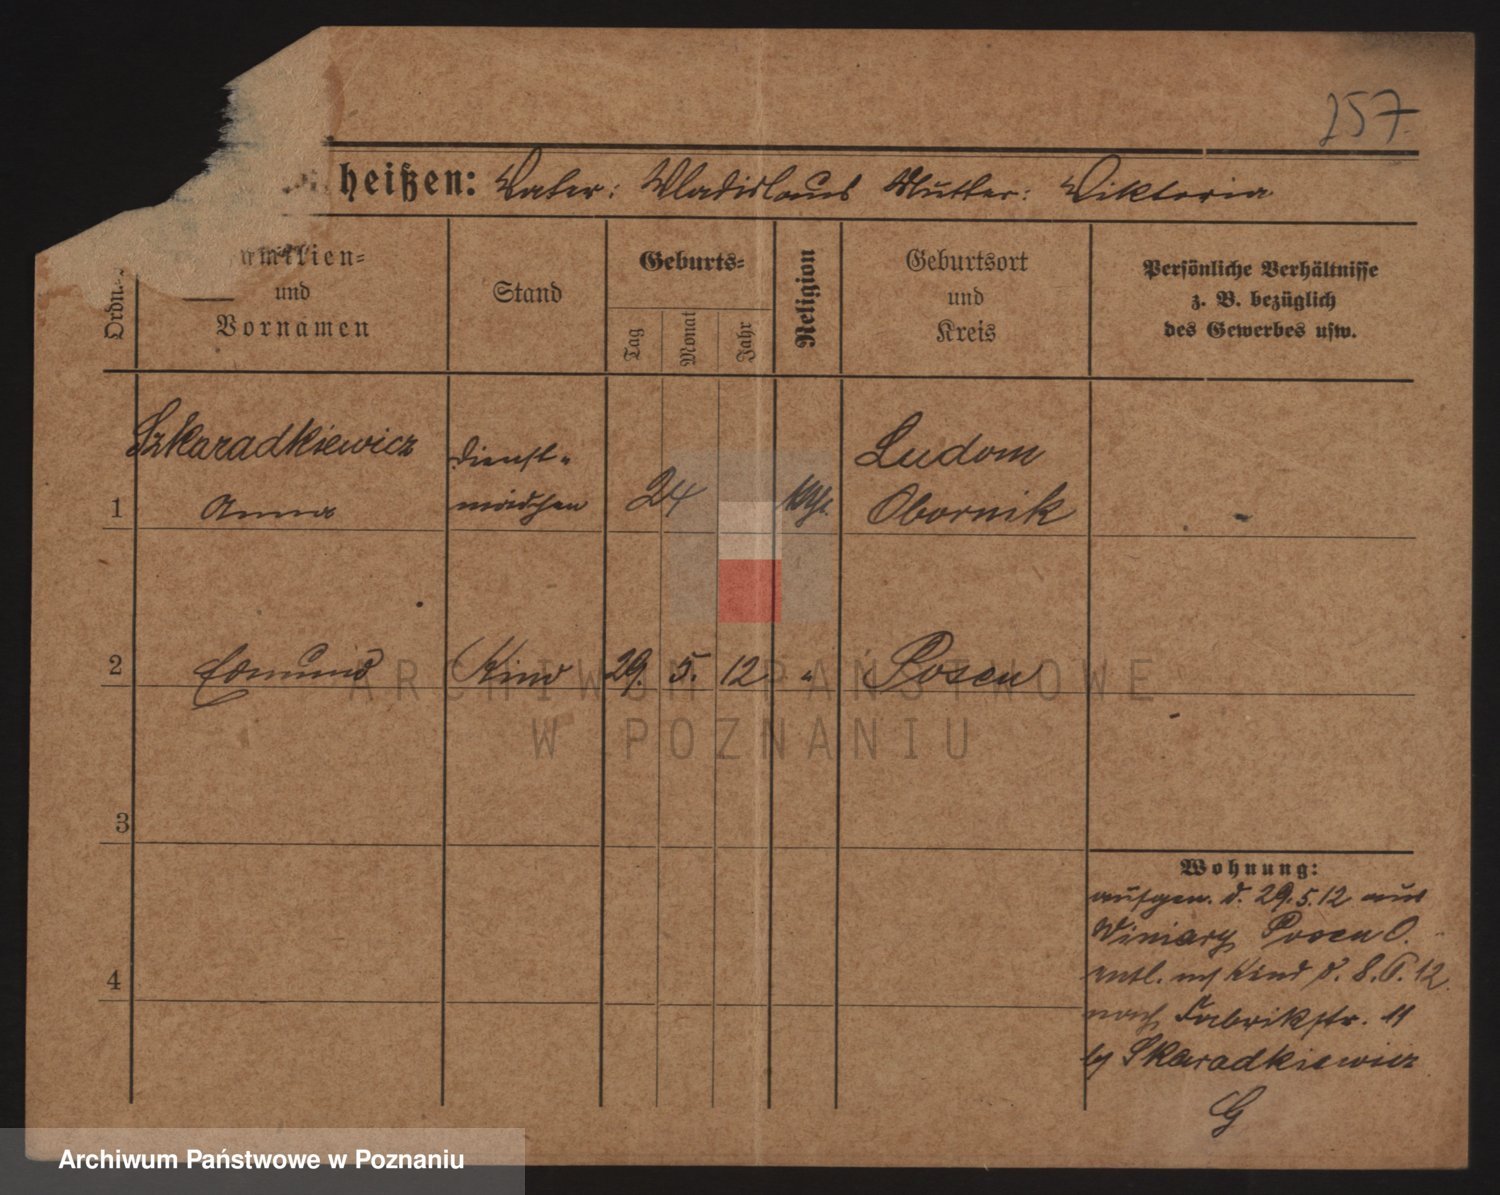 257
heißen: Vater: Wladislaus Mutter: Viktoria
Ordn.
Familien-
und
Vornamen
Stand
Geburts-
Tag
Monat
Jahr
Religion
Geburtsort
und
Kreis
Persönliche Verhältnisse
z. B. bezüglich
des Gewerbes usw.
1
Szkaradkiewicz
Anna
Dienst-
mädchen
24
kth.
Ludom
Obornik
2
Edmund
Kind
29. 5. 12
"
Posen
3
4
Wohnung:
aufgen. d. 29.5.12 aus
Winiary Posen O.
entl. mit Kind d. 8.6.12.
nach Fabrikstr. 11
by Skaradkiewicz
G
ARCHIWUM PAŃSTWOWE
W POZNANIU
Archiwum Państwowe w Poznaniu